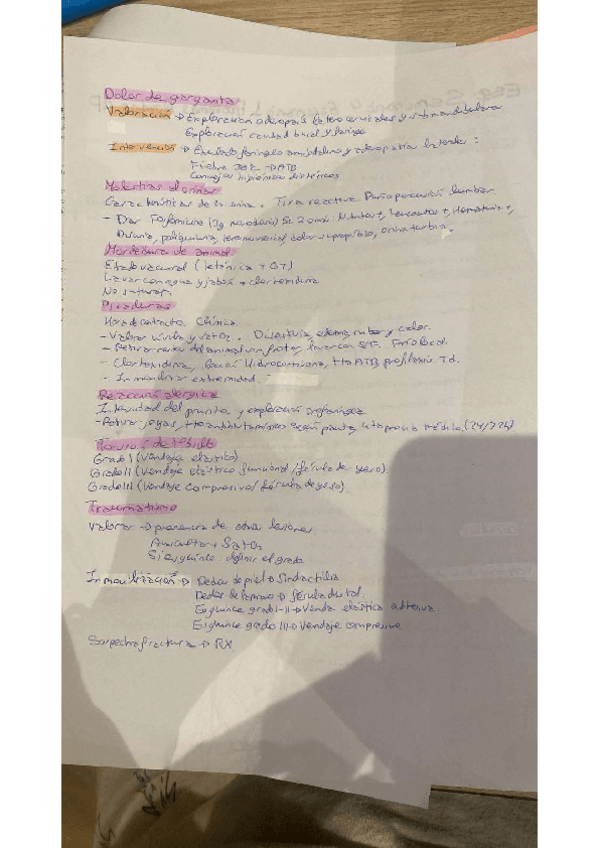 Dolor de garganta
Valoración → Exploración adenopatías laterocervicales y submandibulares
Exploración cavidad bucal y faringe
Intervención → Exudado faringoamigdalino y adenopatía laterales:
→ ATB
Consejos higiénico dietéticos
Molestias al orinar
Características de la orina. Tira reactiva. Puñopercusión lumbar
- Dar Fosfomicina (3g monodosis) Si 2 o más: Nitritos +, Leucocitos +, Hematuria +,
Disuria, polaquiuria, tenesmo vesical, dolor suprapúbico, orina turbia.
Mordedura de animal
Estado vacunal (tetánica + GT)
Lavar con agua y jabón + clorhexidina
No suturar.
Picaduras
Hora de contacto. Clínica.
- Valorar vías y satO2. edema, rubor y calor.
- Retirar restos del animal sin frotar, lavar con SSF. Frío local.
- Clorhexidina, Hidrocortisona, tto ATB profilaxis Td.
- Inmovilizar extremidad.
Reacción alérgica
Intensidad del prurito y exploración orofaríngea
- Retirar joyas, tto antihistamínico según pauta, médico (24/72h)
de tobillo
Grado I (Vendaje elástico)
Grado II (Vendaje elástico funcional / férula de yeso)
Grado III (Vendaje compresivo / férula de yeso)
Traumatismo
Valorar → presencia de otras lesiones
Auscultar + SatO2
Si esguince definir el grado
Inmovilización → Dedos de pie → Sindactilia
Dedos de la mano → férula digital
Esguince grado I-II → Venda elástica adhesiva
Esguince grado III → Vendaje compresivo
Sospecha fractura → RX